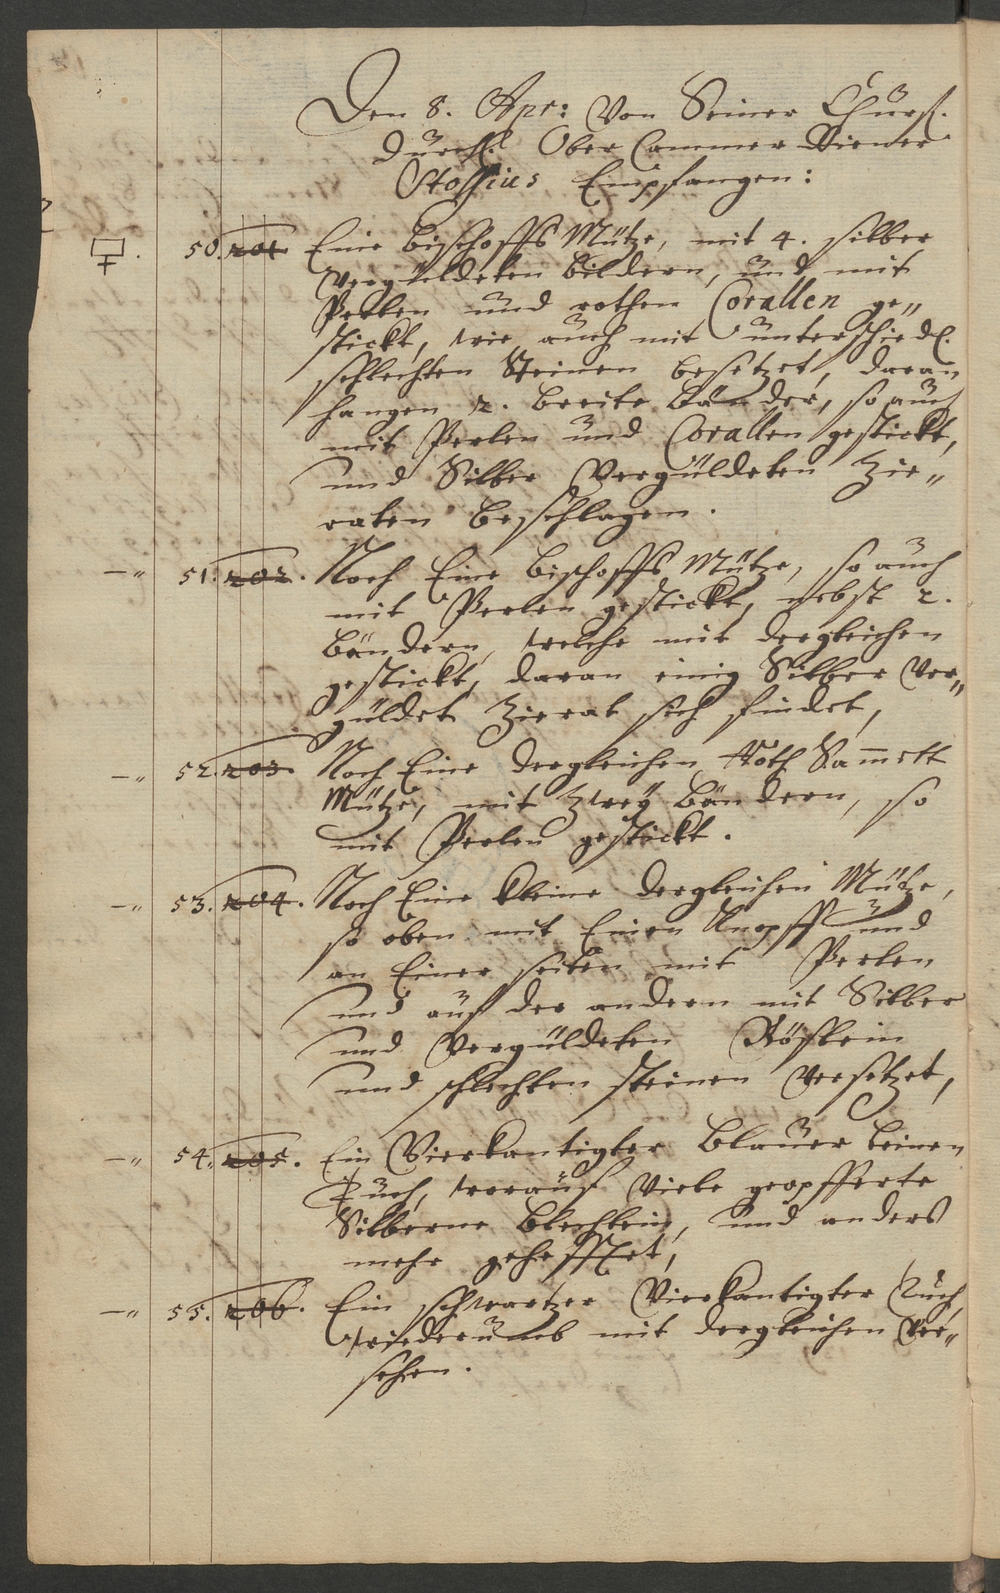 Den 8. Apr: Von Seiner Churf.
Durchl. Ober Cammer Diener
Stossius Empfangen:
50. 201 Eine Bischoffs Mütze, mit 4. silber
vergüldeten bildern, und mit
Perlen und rothen Corallen ge„
stickt, wie auch mit unterschiedl.
schlechten Steinen besetzet, daran
hangen 2. breite Bänder, so auch
mit Perlen und Corallen gestickt,
und Silber Vergüldeten Zie„
raten beschlagen.
—„ 51. 202. Noch Eine Bischoffs Mütze, so auch
mit Perlen gestickt, nebst 2.
Bändern, welche mit dergleichen
gestickt, daran einig Silber Ver„
güldet Zierat sich findet,
—„ 52. 203. Noch Eine dergleichen Roth Sam̄ett
Mütze, mit Zweÿ Bändern, so
mit Perlen gestickt.
—„ 53. 204. Noch Eine kleine dergleichen Mütze,
so oben mit Einen Knopff und
an Einer seiten mit Perlen
und auf der andern mit Silber
und Vergüldeten Rößlein
und schlechten steinen Versetzet,
—„ 54. 205. Ein Vierkantigter Blauer leinen
Tuch, worauf Viele geopfferte
Silberne Blechlein, und anders
mehr gehefftet,
—„ 55. 206. Ein schwartzer Vierkantigter Tuch,
wiederumb mit dergleichen Ver„
sehen.